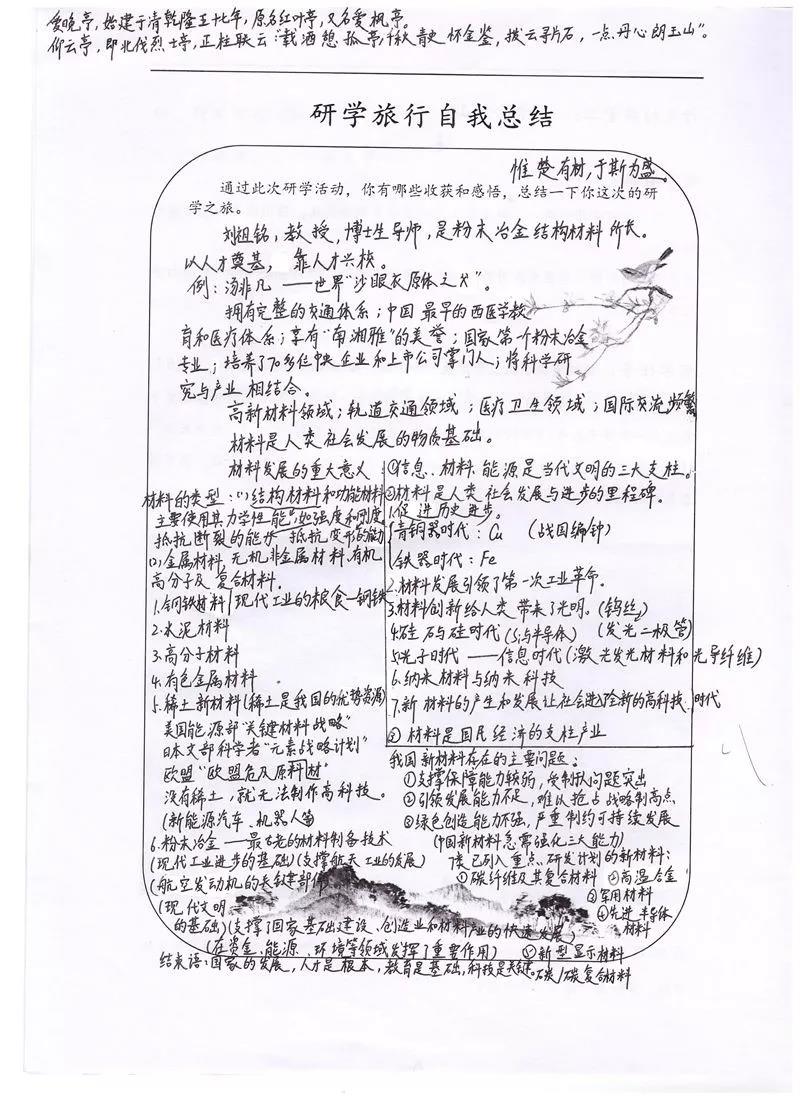 爱晚亭，始建于清乾隆五十七年，原名红叶亭，又名爱枫亭。
仰云亭，即北伐烈士亭，正柱联云：“载酒想孤亭，千秋青史怀金鉴，拨云寻片石，一点丹心朗玉山”。
研学旅行自我总结
惟楚有材，于斯为盛。
通过此次研学活动，你有哪些收获和感悟，总结一下你这次的研
学之旅。
刘祖铭，教授，博士生导师，是粉末冶金结构材料所长。
以人才奠基，靠人才兴校。
例：汤非凡——世界“沙眼衣原体之父”。
拥有完整的交通体系；中国最早的西医学教
育和医疗体系；享有“南湘雅”的美誉；国家第一个粉末冶金
专业；培养了70多位中央企业和上市公司掌门人；将科学研
究与产业相结合。
高新材料领域；轨道交通领域；医疗卫生领域；国际交流频繁
材料是人类社会发展的物质基础。
材料发展的重大意义
材料的类型：(1)结构材料和功能材料
主要使用其力学性能，如强度和刚度
抵抗断裂的能力 抵抗变形的能力
(2)金属材料，无机非金属材料，有机
高分子及复合材料.
1.钢铁材料/现代工业的粮食—钢铁
2.水泥材料
3.高分子材料
4.有色金属材料
5.稀土新材料(稀土是我国的优势资源)
美国能源部“关键材料战略”
日本文部科学者“元素战略计划”
欧盟“欧盟危及原料材”
没有稀土，就无法制作高科技。
(新能源汽车、机器人等
6.粉末冶金——最古老的材料制备技术
(现代工业进步的基础)(支撑航天工业的发展)
(航空发动机的关键部件
(现代文明
的基础)(支撑了国家基础建设、创造业和材料产业的快速发展)
(在资金、能源、环境等领域发挥了重要作用)
①信息、材料、能源是当代文明的三大支柱。
②材料是人类社会发展与进步的里程碑。
1.促进历史进步。
青铜器时代：Cu (战国编钟)
铁器时代：Fe
2.材料发展引领了第一次工业革命.
3.材料创新给人类带来了光明。(钨丝)
4.硅石与硅时代(Si与半导体) (发光二极管)
5.光子时代——信息时代(激光发光材料和光导纤维)
6.纳米材料与纳米科技
7.新材料的产生和发展让社会进入全新的高科技时代
③材料是国民经济的支柱产业
我国新材料存在的主要问题：
①支撑保障能力较弱，受制于人问题突出
②引领发展能力不足，难以抢占战略制高点
③绿色创造能力不强，严重制约可持续发展
(中国新材料急需强化三大能力)
7类已列入重点研发计划的新材料：
①碳纤维及其复合材料 ②高温合金
③军用材料
④先进半导体
材料
⑤新型显示材料
结束语：国家的发展，人才是根本，教育是基础，科技是关键。碳/碳复合材料